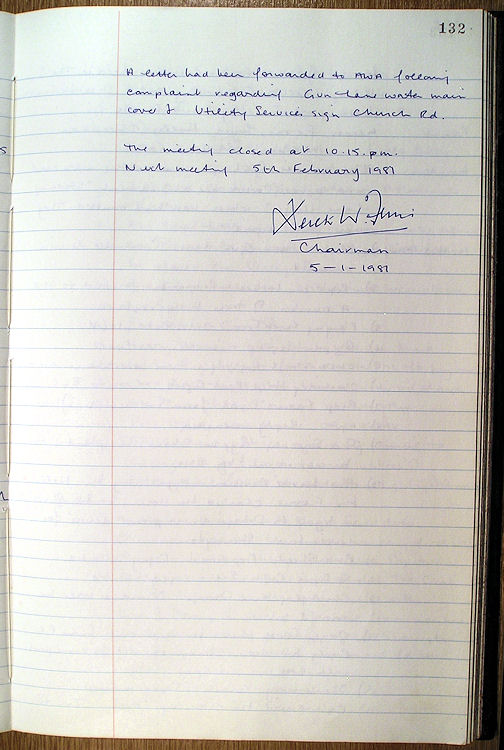 132
A letter had been forwarded to AWA following
complaint regarding Gun Lane water main
cover & Utility Services sign Church Rd.
The meeting closed at 10.15.p.m.
Next meeting 5th February 1981
Derek W.
Chairman
5-1-1981